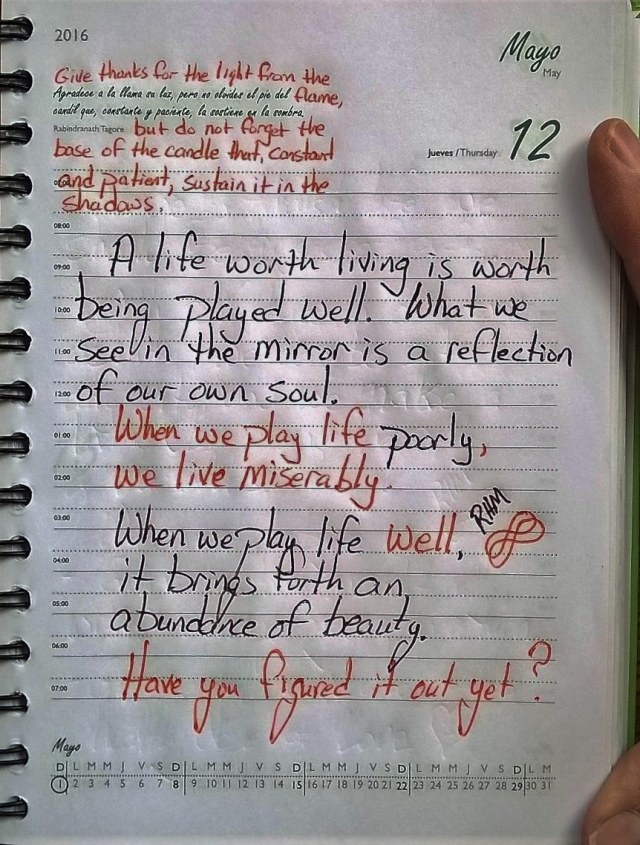 2016
Mayo
May
Give thanks for the light from the
Agradece a la llama su luz, pero no olvides el pie del flame,
candil que, constante y paciente, la sostiene en la sombra.
Rabindranath Tagore but do not forget the
base of the candle that, constant
Jueves / Thursday 12
and patient, sustain it in the
shadows.
08:00
A life worth living is worth
09:00
being played well. What we
10:00
see in the mirror is a reflection
11:00
of our own soul.
12:00
When we play life poorly,
01:00
we live miserably.
02:00
03:00
RHM
When we play life well,
04:00
it brings forth an
05:00
abundance of beauty.
06:00
Have you figured it out yet?
07:00
Mayo
D L M M J V S D L M M J V S D L M M J V S D L M M J V S D L M
1 2 3 4 5 6 7 8 9 10 11 12 13 14 15 16 17 18 19 20 21 22 23 24 25 26 27 28 29 30 31